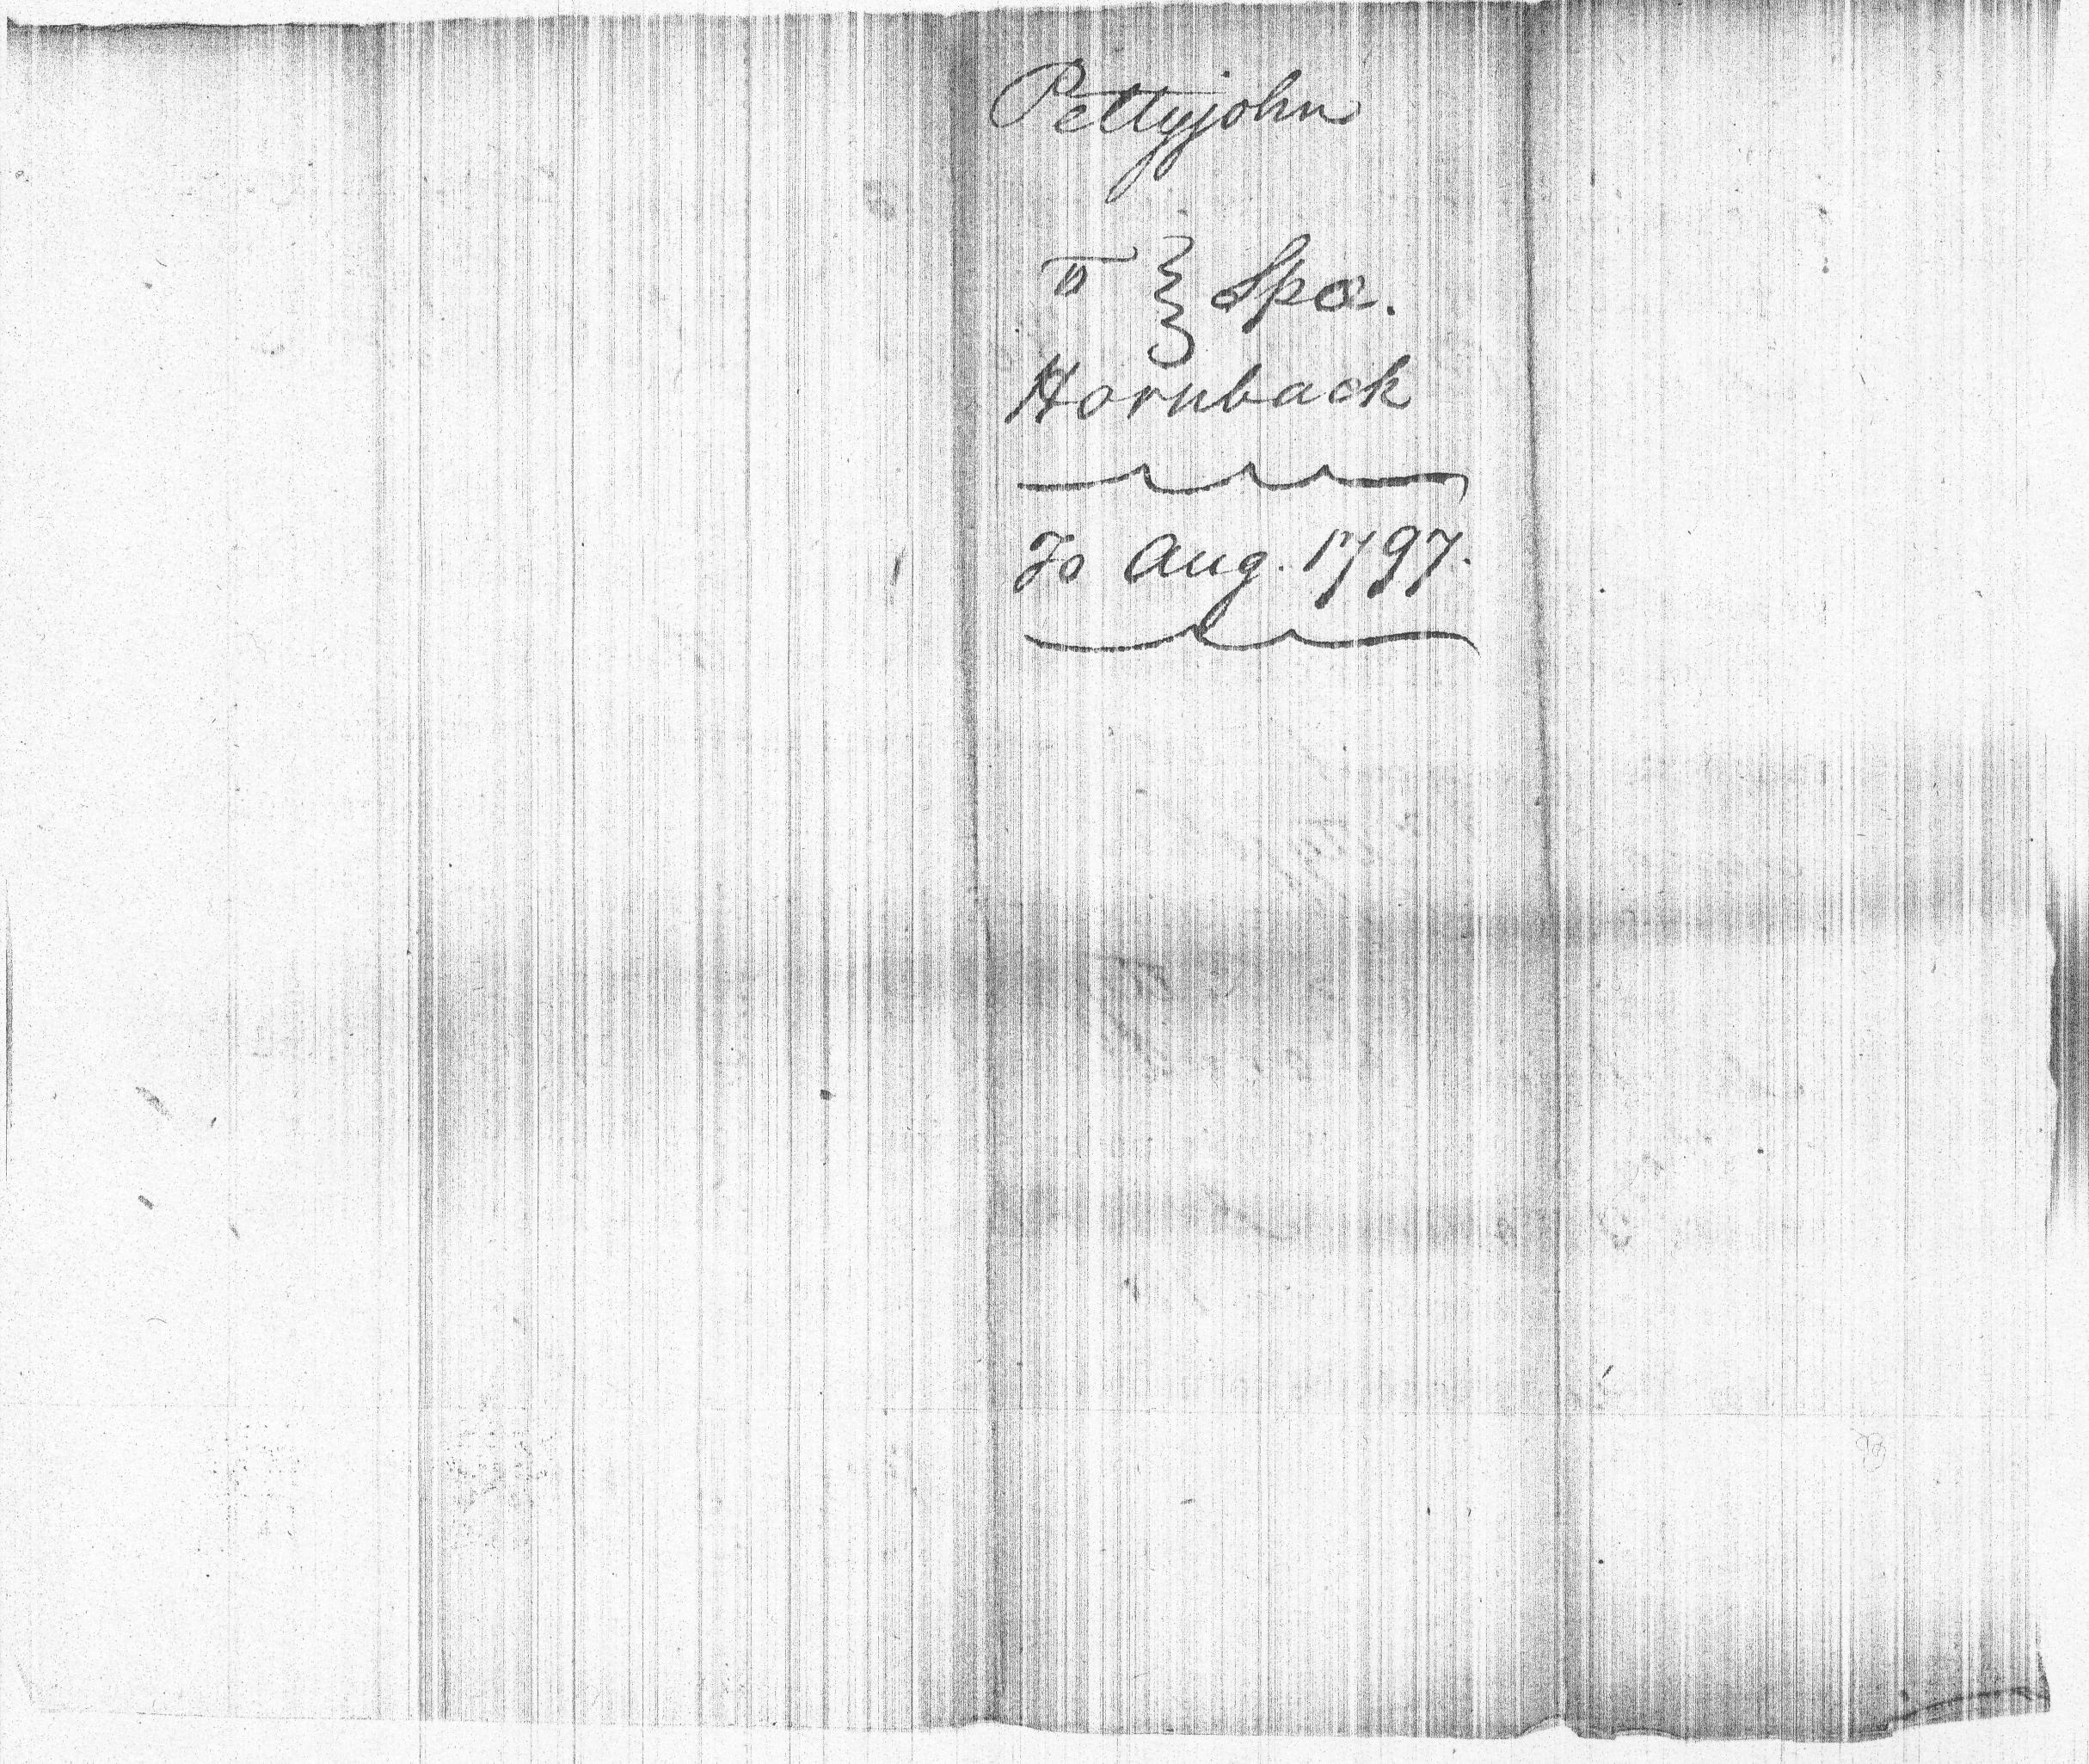 Pettyjohn
vs } Spa.
Hornback
To Aug. 1797.